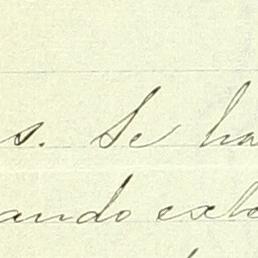 s. Se ha
ando exte